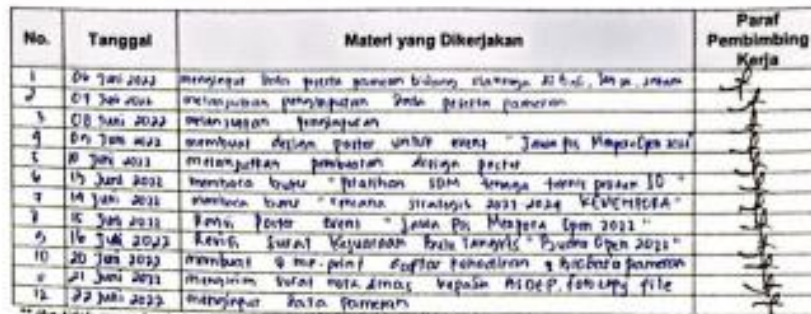 No. Tanggal Materi yang Dikerjakan Paraf Pembimbing Kerja
1 06 Juni 2022 menginput data peserta pameran bidang
2 07 Juni 2022 melanjutkan penginputan data peserta pameran
3 08 Juni 2022 melanjutkan penginputan
4 09 Juni 2022 membuat design poster untuk event "Jawa Pos Open 2022"
5 10 Juni 2022 melanjutkan pembuatan design poster
6 13 Juni 2022 membaca buku "Pelatihan SDM tenaga
7 14 Juni 2022 membaca buku "rencana strategis 2021-2024 KEMENPORA"
8 15 Juni 2022 Revisi Poster Event "Jawa Pos Menpora Open 2022"
9 16 Juni 2022 Revisi Surat Kejuaraan Bulu Tangkis Open 2022"
10 20 Juni 2022 membuat & print daftar kehadiran & pameran
21 Juni 2022 mengirim surat nota dinas kepada ASDEP, fotocopy file
12 22 Juni 2022 menginput data pameran